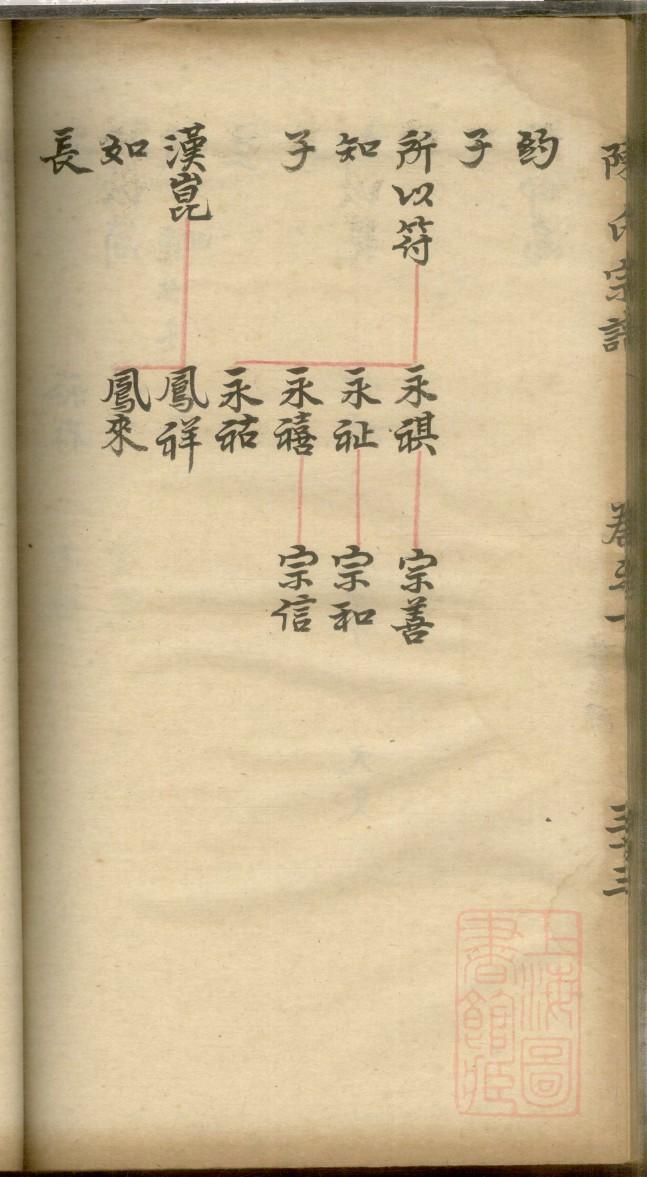 陳氏宗譜 卷之一
子
所以符 永祺 宗善
知 永祉 宗和
子 永禧 宗信
永祜
漢崑 鳳祥
如 鳳來
長
上海圖
書館藏